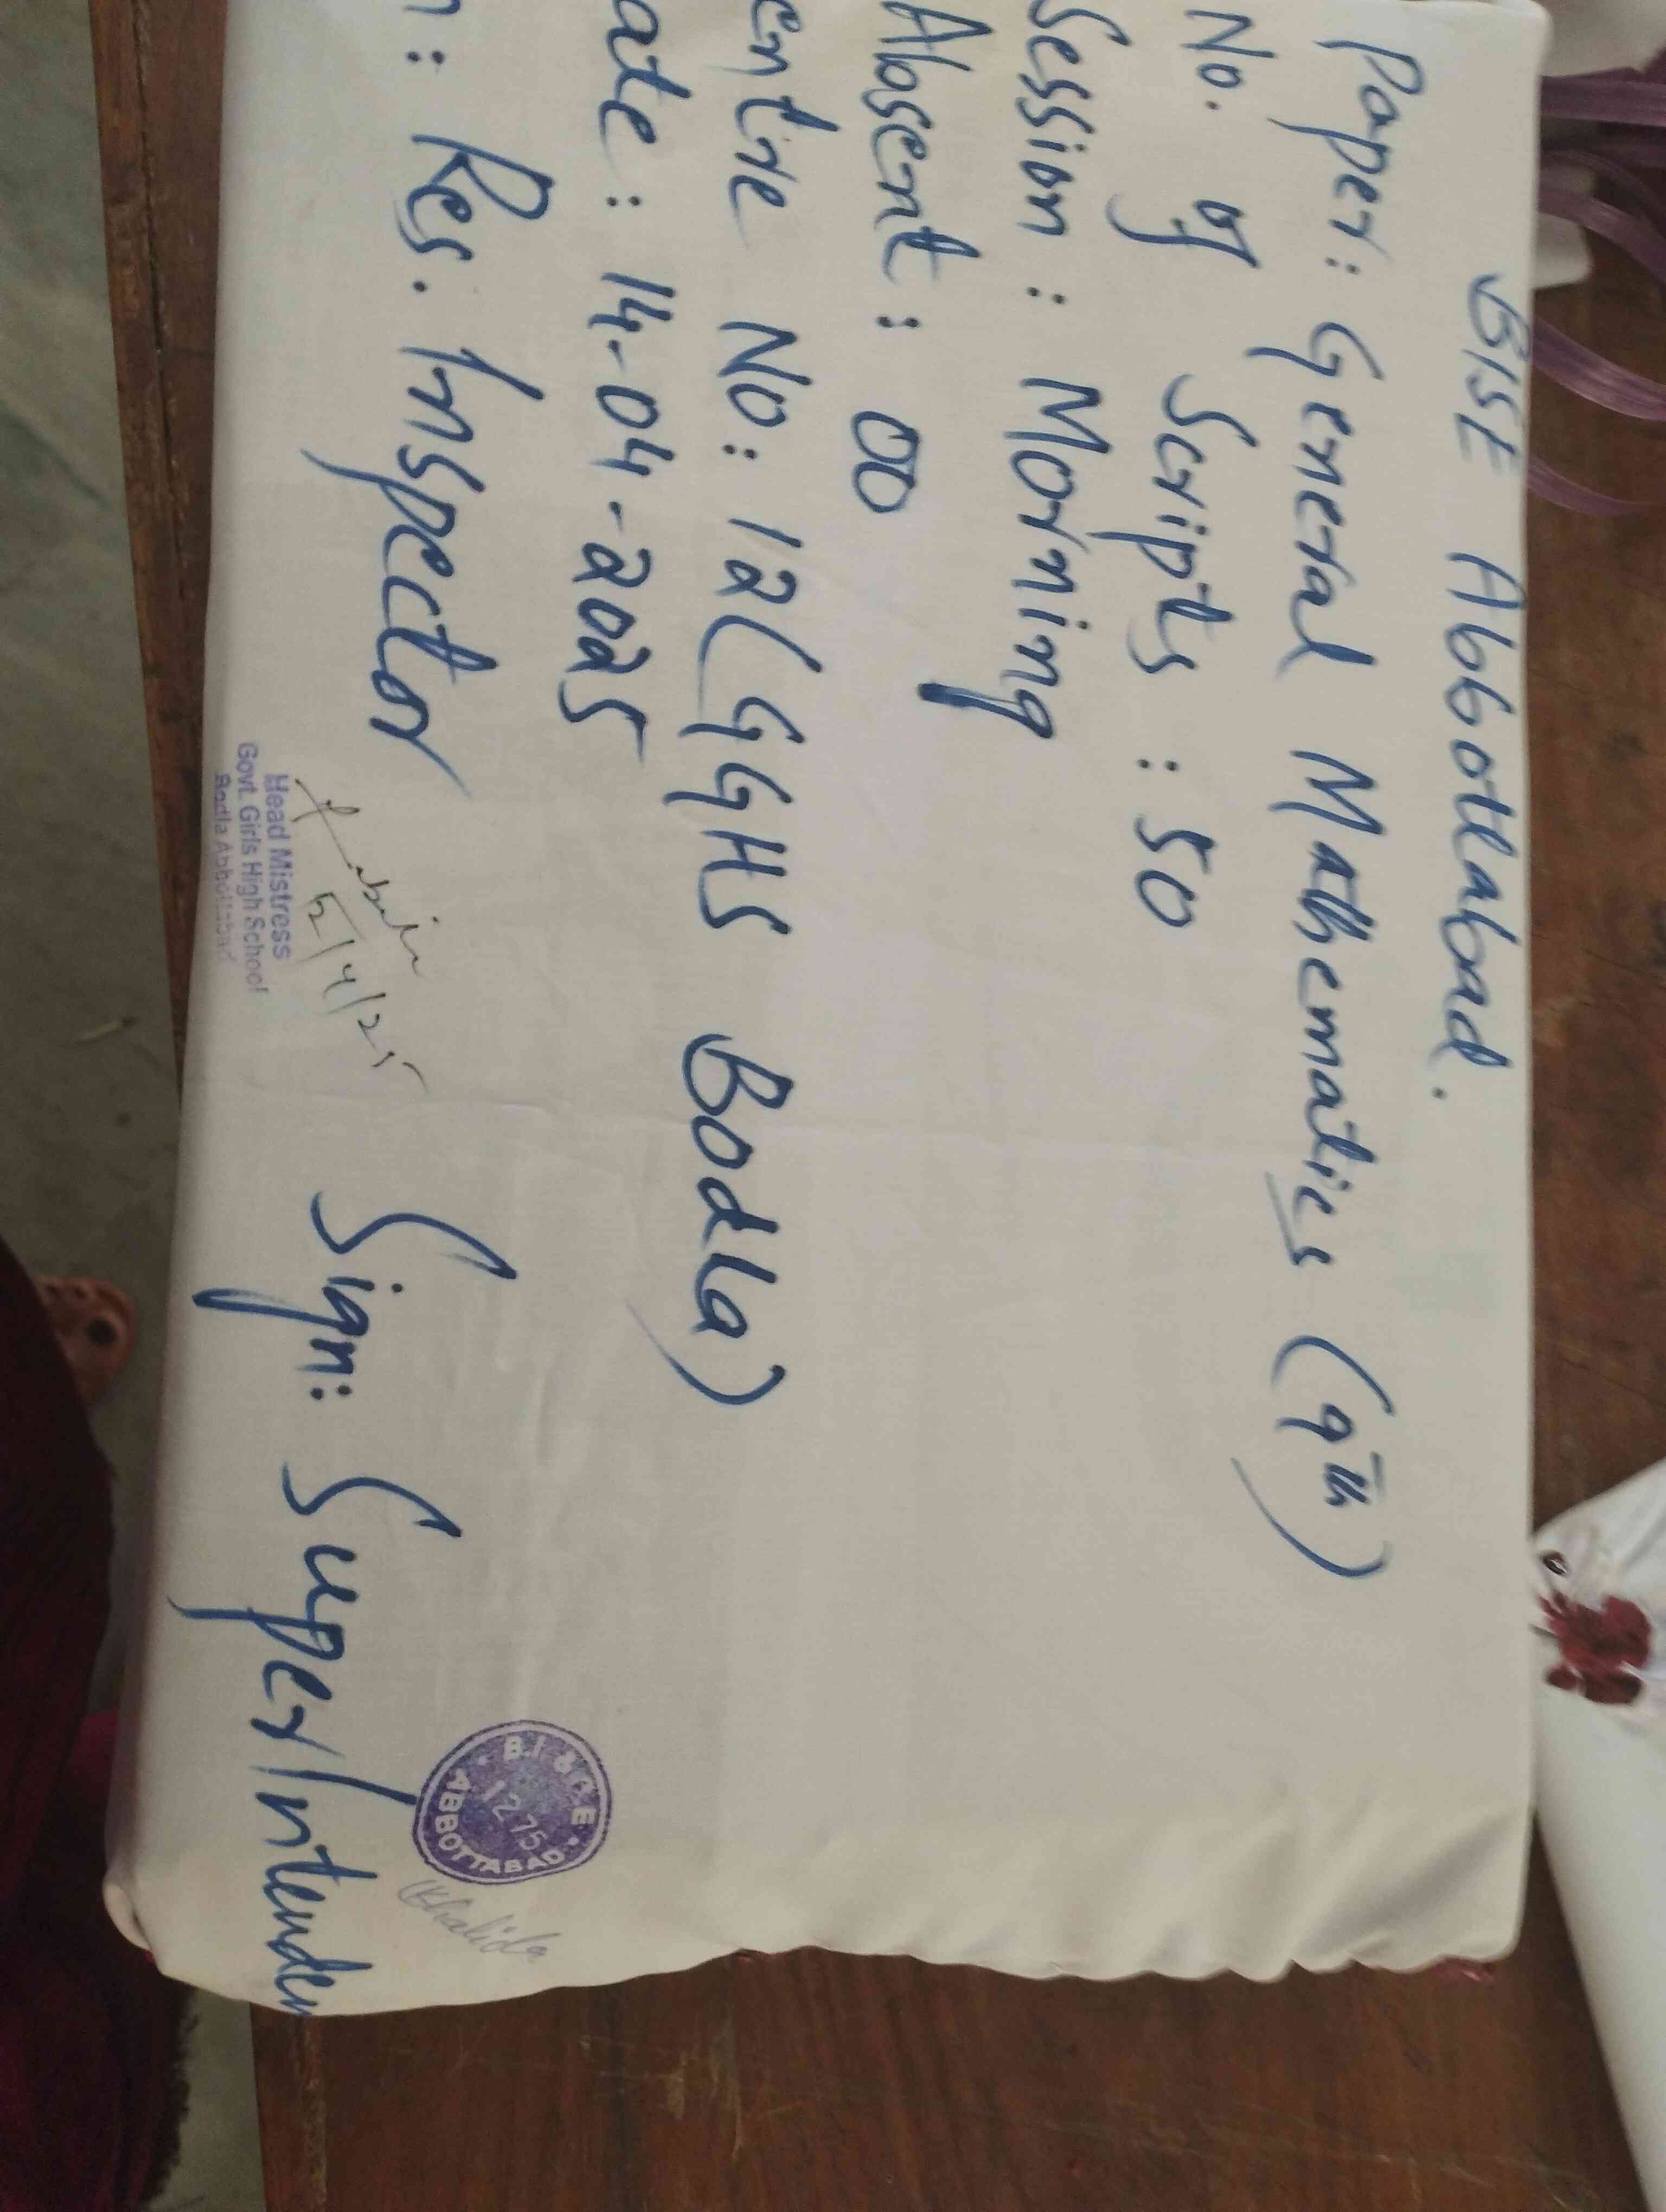 BISE Abbottabad.
Paper: General Mathematics (9th)
No. of Scripts : 50
Session : Morning
Absent : 00
entre No: 12 (GGHS Bodla)
ate : 14-04-2025
n : Res. Inspector Sign: Super/ntenden
5/4/25
Head Mistress
Govt. Girls High School
Bodla Abbottabad
B.I & S.E
1275
ABBOTTABAD
Khalida